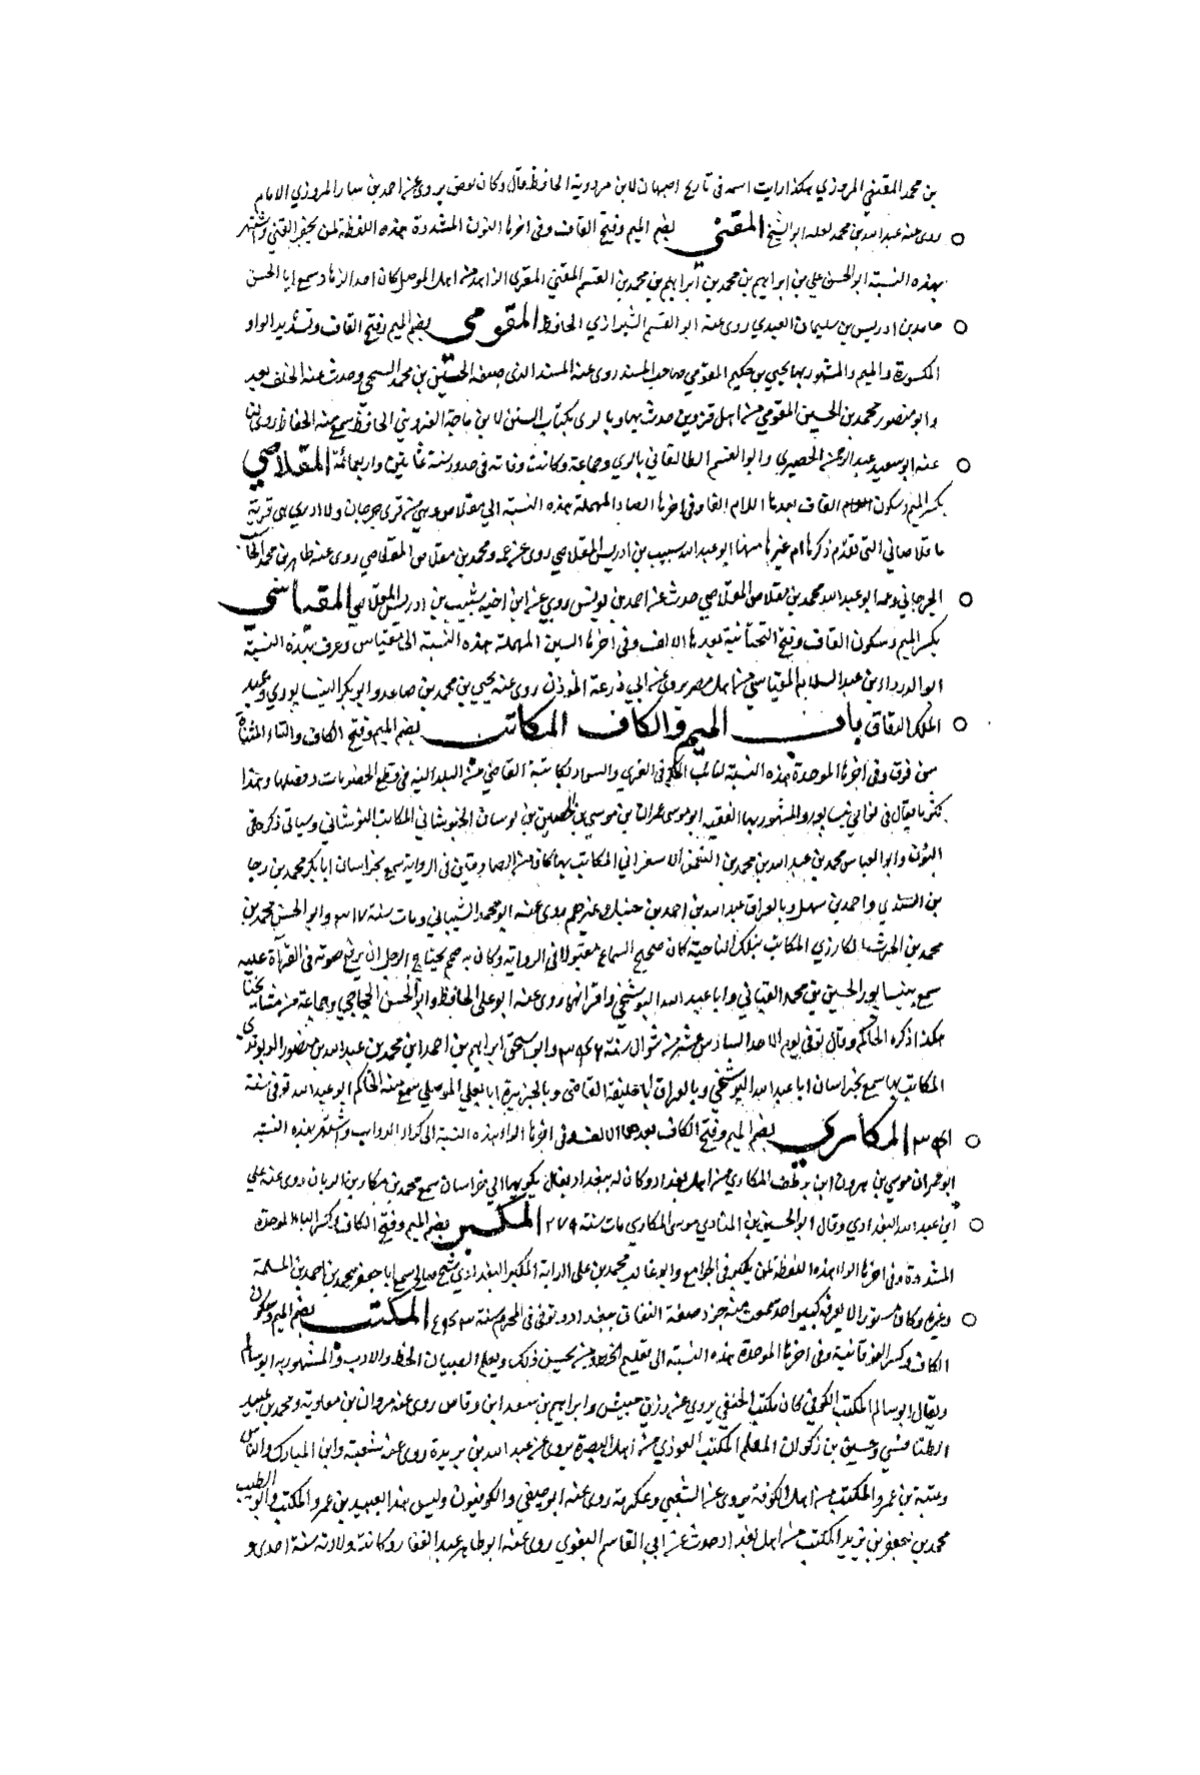 بن محمد المقنعي المروزي هكذا رايت اسمه في تاريخ اصبهان لابن مردوية الحافظ وقال وكان يروي عن احمد بن سيار المروزي الامام
روى عنه عبد الله بن محمد لعله ابو الشيخ المقني بضم الميم وفتح القاف وفي اخرها النون المشددة هذه اللفظة لمن يحفر القني واشتهر
بهذه النسبة ابو الحسن علي بن ابراهيم بن محمد بن ابراهيم بن محمد بن القسم المقني المقرى الزاهد من اهل الموصل كان احد الزهاد سمع ابا الحسن
حامد بن ادريس بن سليمان العبدي روى عنه ابو القسم الشيرازي الحافظ المقومي بضم الميم وفتح القاف وتشديد الواو
المكسورة والميم والمشهور بها يحيى بن حكيم المقومي صاحب المسند روى عنه المسند الذي صنفه الحسين بن محمد السبحي وحدث عنه الخلف بعد
وابو منصور محمد بن الحسين المقومي من اهل قزوين حدث بها وبالري بكتاب السنن لابن ماجة القزويني الحافظ سمع منه الحفاظ روى لنا
عنه ابو سعيد عبد الرحمن الحصيري وابو القسم الطالقاني بالري وجماعة وكانت وفاته في حدود سنة ثمانين واربعمائة المقلاصي
بكسر الميم وسكون القاف بعدها اللام الف وفي اخرها الصاد المهملة هذه النسبة الى مقلاص وهي من قرى جرجان ولا ادري هي قرية
ماقلاصان التي تقدم ذكرها ام غيرها منها ابو عبد الله شبيب بن ادريس المقلاصي روى عن عمه محمد بن مقلاص المقلاصي روى عنه طاهر بن محمد
الجرجاني وعمه ابو عبد الله محمد بن مقلاص المقلاصي حدث عن احمد بن يونس روى عن ابن اخيه شبيب بن ادريس المقلاصي المقياسي
بكسر الميم وسكون القاف وفتح التحتانية بعدها الالف وفي اخرها السين المهملة هذه النسبة الى مقياس وعرف بهذه النسبة
ابو الرداد بن عبد السلام المقياسي من اهل مصر يروي عن ابي زرعة المؤذن روى عنه يحيى بن محمد بن صاعد وابو بكر النيسابوري وعبد
الملك الدقاق باب الميم والكاف المكاتب بضم الميم وفتح الكاف والتاء المثناة
من فوق وفي اخرها الموحدة هذه النسبة لنائب الحكم في القرى والسواد لمكاتبة القاضي من البلد اليه في قطع الخصومات وفصلها وهذا
كثر ما يقال في نواحي نيسابور والمشهور بها الفقيه ابو موسى عمران بن موسى بن الحصين بن نوسان الخبوشاني المكاتب النوشاني وسياتي ذكره في
النون وابو العباس محمد بن عبد الله بن محمد بن الاسفراني المكاتب بها كان من الصادقين في الرواية سمع بخراسان ابا بكر محمد بن رجا
بن السندي واحمد بن سهل وبالعراق عبد الله بن احمد بن حنبل وغيرهم روى عنه ابو محمد الشيباني ومات سنة ٣١٧ وابو الحسن محمد بن
محمد بن الحرث الكارزي المكاتب بتلك الناحية كان صحيح السماع مقبولا في الرواية وكان به صمم يحتاج الرجل ان يرفع صوته في القراة عليه
سمع بنيسابور الحسين بن محمد القباني وابا عبد الله البوشنجي واقرانهما روى عنه ابو علي الحافظ وابو الحسن الحجاجي وجماعة من مشايخنا
هكذا ذكره الحاكم وقال توفي يوم الاحد السادس عشر من شوال سنة ٣٤٦ وابو اسحق ابراهيم بن احمد بن محمد بن عبد الله بن منصور
المكاتب بها سمع بخراسان ابا عبد الله البوشنجي وبالعراق ابا خليفة القاضي وبالجزيرة ابا يعلى الموصلي سمع منه الحاكم ابو عبد الله توفي سنة
٣٤١ المكاري بضم الميم وفتح الكاف بعدها الالف وفي اخرها الراء هذه النسبة الى كراء الدواب واشتهر بهذه النسبة
ابو عمران موسى بن هرون ابن المكاري من اهل بغداد وكان له ببغداد بغال يكريها الى خراسان سمع محمد بن بكار بن الريان روى عنه علي
ابن عبد الله البغدادي وقال ابو الحسين بن المنادي موسى المكاري مات سنة ٢٧٩ المكبر بضم الميم وفتح الكاف وكسر الباء الموحدة
المشددة وفي اخرها الراء هذه اللفظة لمن يكبر في الجوامع وابو غالب محمد بن علي الراية المكبر البغدادي شيخ صالح سمع ابا جعفر محمد بن احمد بن المسلمة
وغيره وكان مستورا لا يعرفه كبير احد سمعت منه جزء صفة النفاق ببغداد وتوفي في المحرم سنة المكتب بضم الميم وسكون
الكاف وكسر الفوقانية وفي اخرها الموحدة هذه النسبة الى تعليم الخط ومن يحسن ذلك ويعلم الصبيان الخط والادب والمشهور به ابو سالم
ويقال ابو سالم المكتب الكوفي كان مكتب الحنفي يروي عن زر بن حبيش وابراهيم بن سعد ابن وقاص روى عنه مروان بن معاوية ومحمد بن عبيد
الطنافسي وحسين بن ذكوان المعلم المكتب العوذي من اهل البصرة يروي عن عبد الله بن بريدة روى عنه شعبة وابن المبارك والناس
وعتبة بن عمرو المكتب من اهل الكوفة يروي عن الشعبي وعكرمة روى عنه ابو صيفي والكوفيون وليس هذا بعبيد بن عمرو المكتب وابو الطيب
محمد بن جعفر بن يزيد المكتب من اهل بغداد حدث عن ابي القاسم البغوي روى عنه ابو طاهر عبد الغفار وكانت ولادته سنة احدى و